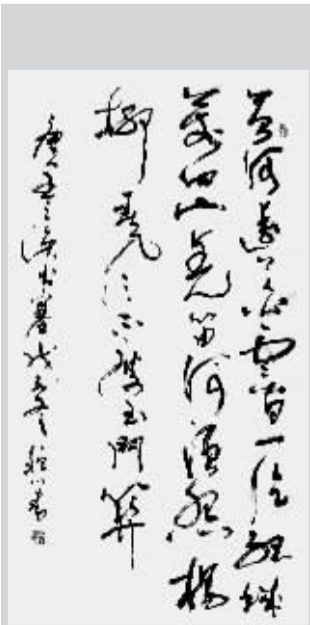 黄河遠上白雲間一片孤城
萬仞山羌笛何須怨楊
柳春風不度玉門關
唐王之渙出塞